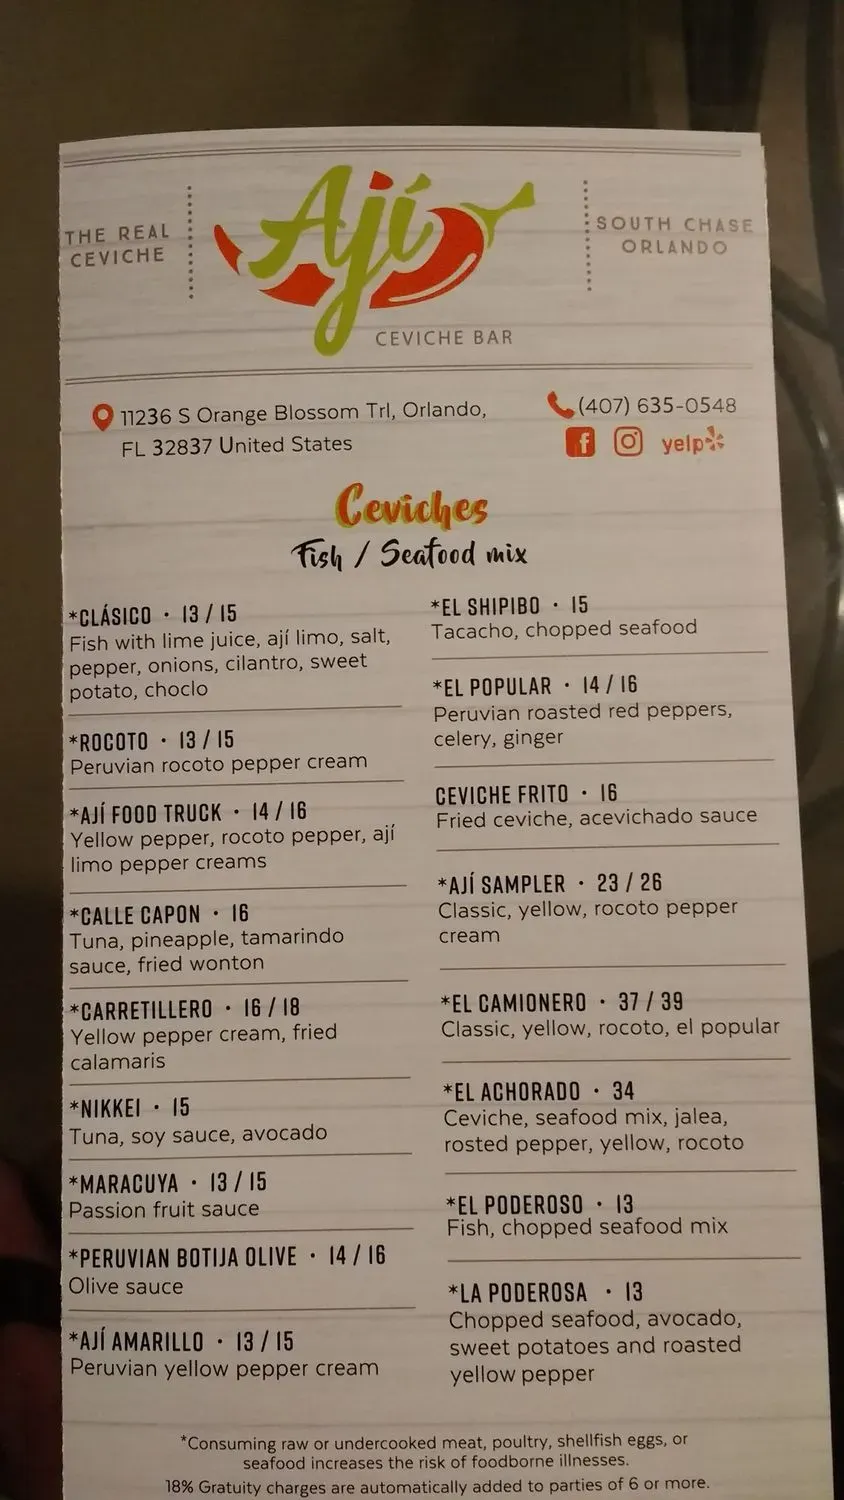 THE REAL
CEVICHE
Ají
CEVICHE BAR
SOUTH CHASE
ORLANDO
11236 S Orange Blossom Trl, Orlando,
FL 32837 United States
(407) 635-0548
f
yelp
Ceviches
Fish / Seafood mix
*CLÁSICO · 13 / 15
Fish with lime juice, ají limo, salt,
pepper, onions, cilantro, sweet
potato, choclo
*ROCOTO · 13 / 15
Peruvian rocoto pepper cream
*AJÍ FOOD TRUCK · 14 / 16
Yellow pepper, rocoto pepper, ají
limo pepper creams
*CALLE CAPON · 16
Tuna, pineapple, tamarindo
sauce, fried wonton
*CARRETILLERO · 16 / 18
Yellow pepper cream, fried
calamaris
*NIKKEI · 15
Tuna, soy sauce, avocado
*MARACUYA · 13 / 15
Passion fruit sauce
*PERUVIAN BOTIJA OLIVE · 14 / 16
Olive sauce
*AJÍ AMARILLO · 13 / 15
Peruvian yellow pepper cream
*EL SHIPIBO · 15
Tacacho, chopped seafood
*EL POPULAR · 14 / 16
Peruvian roasted red peppers,
celery, ginger
CEVICHE FRITO · 16
Fried ceviche, acevichado sauce
*AJÍ SAMPLER · 23 / 26
Classic, yellow, rocoto pepper
cream
*EL CAMIONERO · 37 / 39
Classic, yellow, rocoto, el popular
*EL ACHORADO · 34
Ceviche, seafood mix, jalea,
rosted pepper, yellow, rocoto
*EL PODEROSO · 13
Fish, chopped seafood mix
*LA PODEROSA · 13
Chopped seafood, avocado,
sweet potatoes and roasted
yellow pepper
*Consuming raw or undercooked meat, poultry, shellfish eggs, or
seafood increases the risk of foodborne illnesses.
18% Gratuity charges are automatically added to parties of 6 or more.